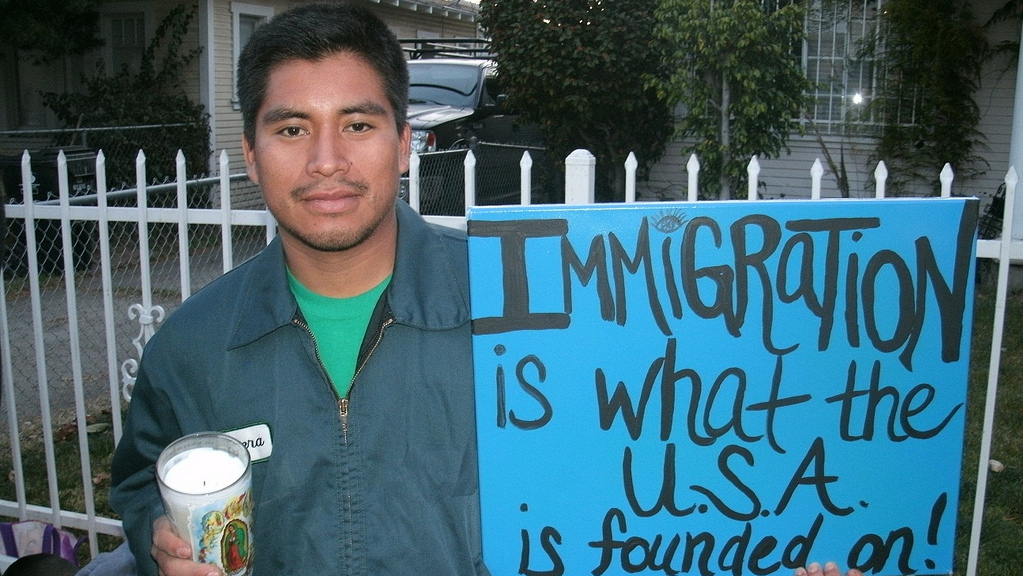 IMMiGRaTiON
is what the
U.S.A.
is founded on!